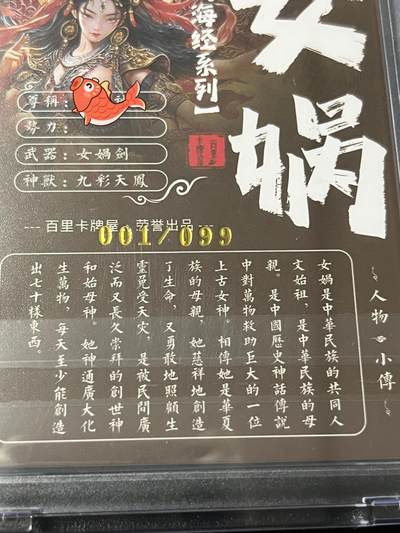 女娲
海经系列
尊稱：
势力：
武器：女媧劍
神獸：九彩天鳳
--- 百里卡牌屋·荣誉出品
001/099
人物小傳
女媧是中華民族的共同人
文始祖，是中華民族的母
親。是中國歷史神話傳說
中對萬物救助巨大的一位
上古女神。相傳她是華夏
族的母親，她慈祥地創造
了生命，又勇敢地照顧生
靈免受天灾，是被民間廣
泛而又長久崇拜的創世神
和始母神。她神通廣大化
生萬物，每天至少能創造
出七十樣東西。